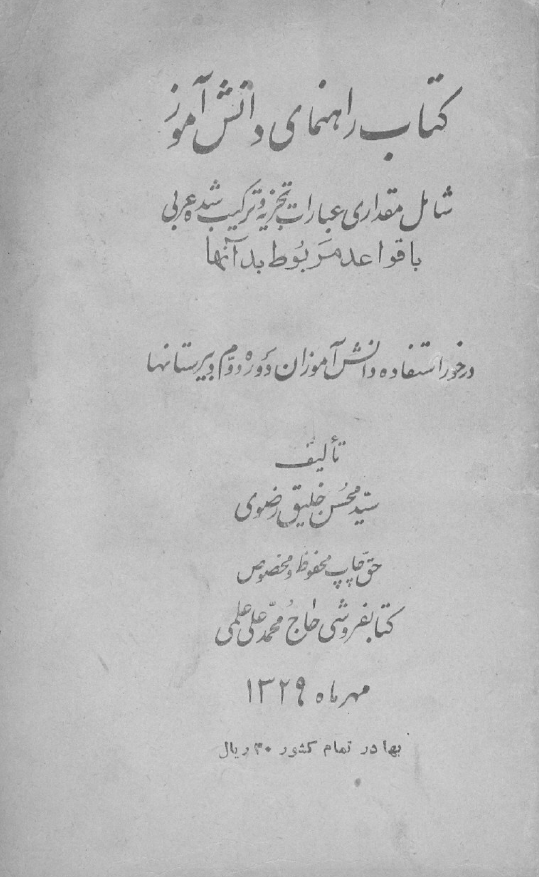 کتاب راهنمای دانش آموز
شامل مقداری عبارات تجزیه و ترکیب شده عربی
با قواعد مربوط بدآنها
درخور استفاده دانش آموزان دوره دوم دبیرستانها
تألیف
سید محسن خلیق رضوی
حق چاپ محفوظ و مخصوص
کتابفروشی حاج محمد علی علمی
مهرماه ۱۳۲۹
بها در تمام کشور ۳۰ ریال